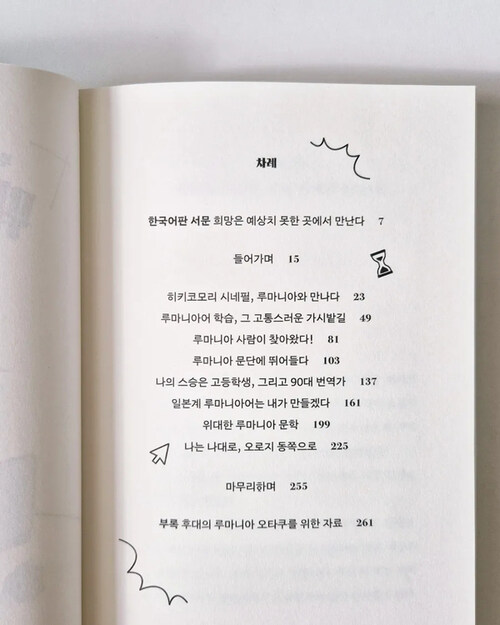 차례
한국어판 서문 희망은 예상치 못한 곳에서 만난다 7
들어가며 15
히키코모리 시네필, 루마니아와 만나다 23
루마니아어 학습, 그 고통스러운 가시밭길 49
루마니아 사람이 찾아왔다! 81
루마니아 문단에 뛰어들다 103
나의 스승은 고등학생, 그리고 90대 번역가 137
일본계 루마니아어는 내가 만들겠다 161
위대한 루마니아 문학 199
나는 나대로, 오로지 동쪽으로 225
마무리하며 255
부록 후대의 루마니아 오타쿠를 위한 자료 261